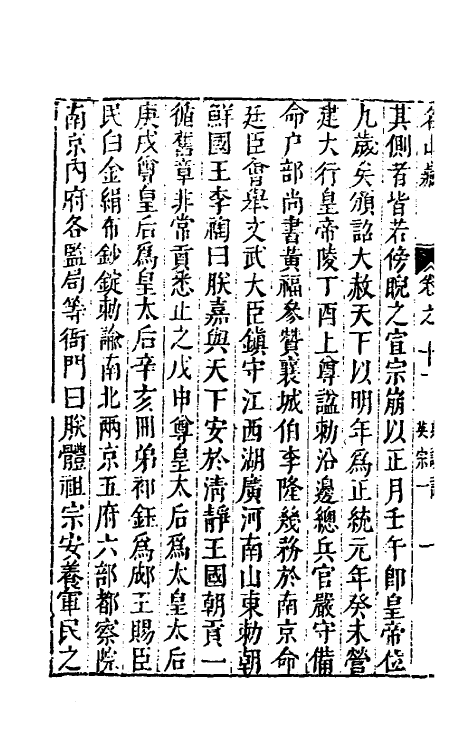 名山藏 卷之十一 典謨記 英宗一 一
其側者皆若傍睨之宣宗崩以正月壬午卽皇帝位
九歲矣頒詔大赦天下以明年爲正統元年癸未營
建大行皇帝陵丁酉上尊謚勑沿邊總兵官嚴守備
命户部尚書黃福參贊襄城伯李隆幾務於南京命
廷臣會舉文武大臣鎮守江西湖廣河南山東勑朝
鮮國王李祹曰朕嘉與天下安於清靜王國朝貢一
循舊章非常貢悉止之戊申尊皇太后爲太皇太后
庚戌尊皇后爲皇太后辛亥冊弟祁鈺爲郕王賜臣
民白金絹布鈔錠勑諭南北兩京五府六部都察院
南京內府各監局等衙門曰朕體祖宗安養軍民之